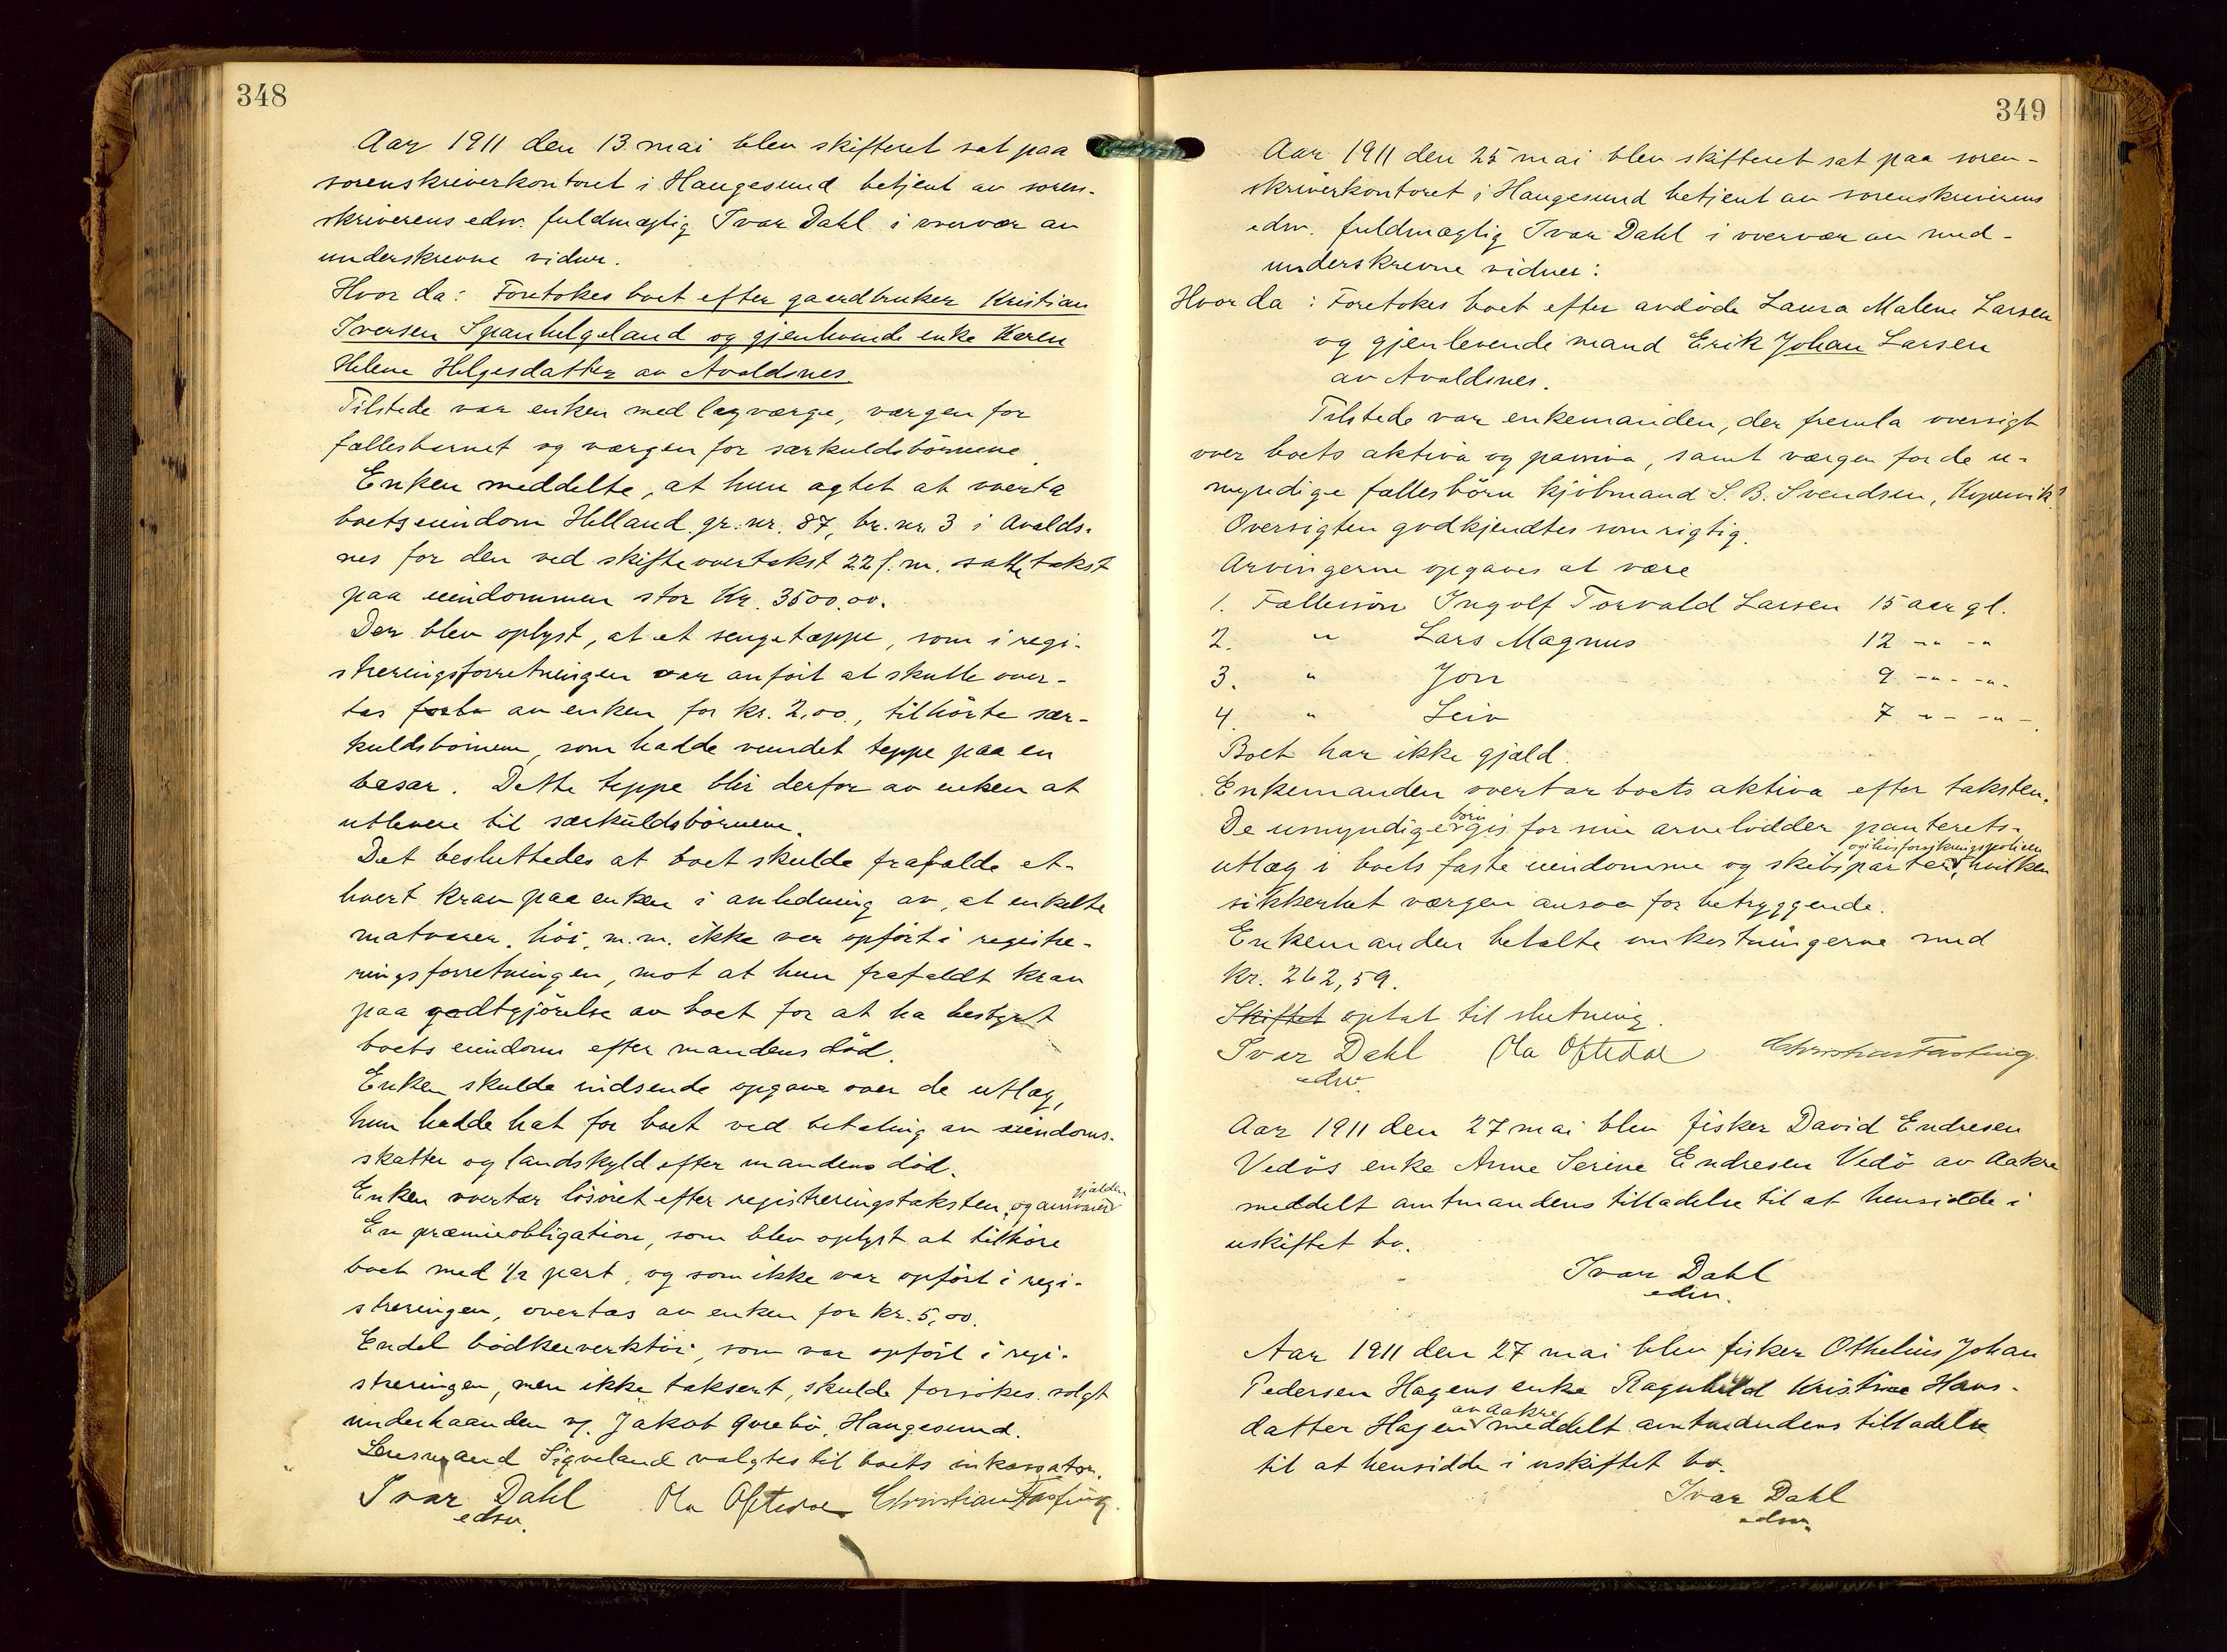 348
Aar 1911 den 13. mai blev skifteret sat paa
sorenskriverkontoret i Haugesund betjent av soren-
skriverens edsv. fuldmægtig Ivar Dahl i overvær av
underskrevne vidner.
Hvor da: Foretokes boet efter gaardbruker Kristian
Iversen Spanhelgeland og gjenlevende enke Karen
Helene Helgesdatter av Avaldsnes.
Tilstede var enken med lagværge, værgen for
fællesbarnet og værgen for særkuldsbørnene.
Enken meddelte, at hun agtet at overta
boets eiendom Helland gr. nr. 87, br. nr. 3 i Avalds-
nes for den ved skifteovertakst 22 f. m. satte takst
paa eiendommen stor Kr. 3500.00.
Der blev oplyst, at et sengetæppe, som i regi-
streringsforretningen var anført at skulle over-
tas av enken for kr. 2,00, tilhørte sær-
kuldsbørnene, som hadde vundet teppe paa en
basar. Dette teppe blir derfor av enken at
utlevere til særkuldsbørnene.
Det besluttedes at boet skulde frafalde et-
hvert krav paa enken i anledning av, at enkelte
matvarer, høi, m.m. ikke var opført i registre-
ringsforretningen, mot at hun frafaldt krav
paa godtgjørelse av boet for at ha bestyrt
boets eiendom efter mandens død.
Enken skulde indsende opgave over de utlæg,
hun hadde hat for boet ved betaling av eiendoms-
skatter og landskyld efter mandens død.
Enken overtar løsøret efter registreringstaksten, og ansvarer gjælden
En præmieobligation, som blev oplyst at tilhøre
boet med 1/2 part, og som ikke var opført i regi-
streringen, overtas av enken for kr. 5,00.
Endel bødkerverktøi, som var opført i regi-
streringen, men ikke taksert, skulde forsøkes solgt
underhaanden v. Jakob Qvrebø, Haugesund.
Lensmand Sigveland valgtes til boets inkassator.
Ivar Dahl Ola Oftedal Christian Fasting.
edsv.
349
Aar 1911 den 25 mai blev skifteret sat paa soren-
skriverkontoret i Haugesund betjent av sorenskriverens
edsv. fuldmægtig Ivar Dahl i overvær av med-
underskrevne vidner:
Hvor da: Foretokes boet efter avdøde Laura Malene Larsen
og gjenlevende mand Erik Johan Larsen
av Avaldsnes.
Tilstede var enkemanden, der fremla oversigt
over boets aktiva og passiva, samt værgen for de u-
myndige fællesbørn kjøbmand S. B. Svendsen, Kopervik.
Oversigten godkjendtes som rigtig.
Arvingerne opgaves at være
1. Fællessøn Ingolf Torvald Larsen 15 aar gl.
2. " Lars Magnus 12 -"- -"
3. " Jon 9 -"- -"-
4. " Leiv 7 -"- -"-
Boet har ikke gjæld.
Enkemanden overtar boets aktiva efter taksten.
De umyndige børn gis for sine arvelodder panterets-
utlæg i boets faste eiendomme og skibsparter og i livsforsikringspolicen, hvilken
sikkerhet værgen ansaa for betryggende.
Enkemanden betalte omkostningerne med
kr. 262,59.
Skiftet optat til slutning.
Ivar Dahl Ola Oftedal Christian Fasting.
edsv.
Aar 1911 den 27 mai blev fisker David Endresen
Vedøs enke Anne Serine Endresen Vedø av Aakre
meddelt amtmandens tilladelse til at hensidde i
uskiftet bo.
Ivar Dahl
edsv.
Aar 1911 den 27 mai blev fisker Othelius Johan
Pedersen Hagens enke Ragnhild Kristine Hans-
datter Hagen av Aakre meddelt amtmandens tilladelse
til at hensidde i uskiftet bo.
Ivar Dahl
edsv.